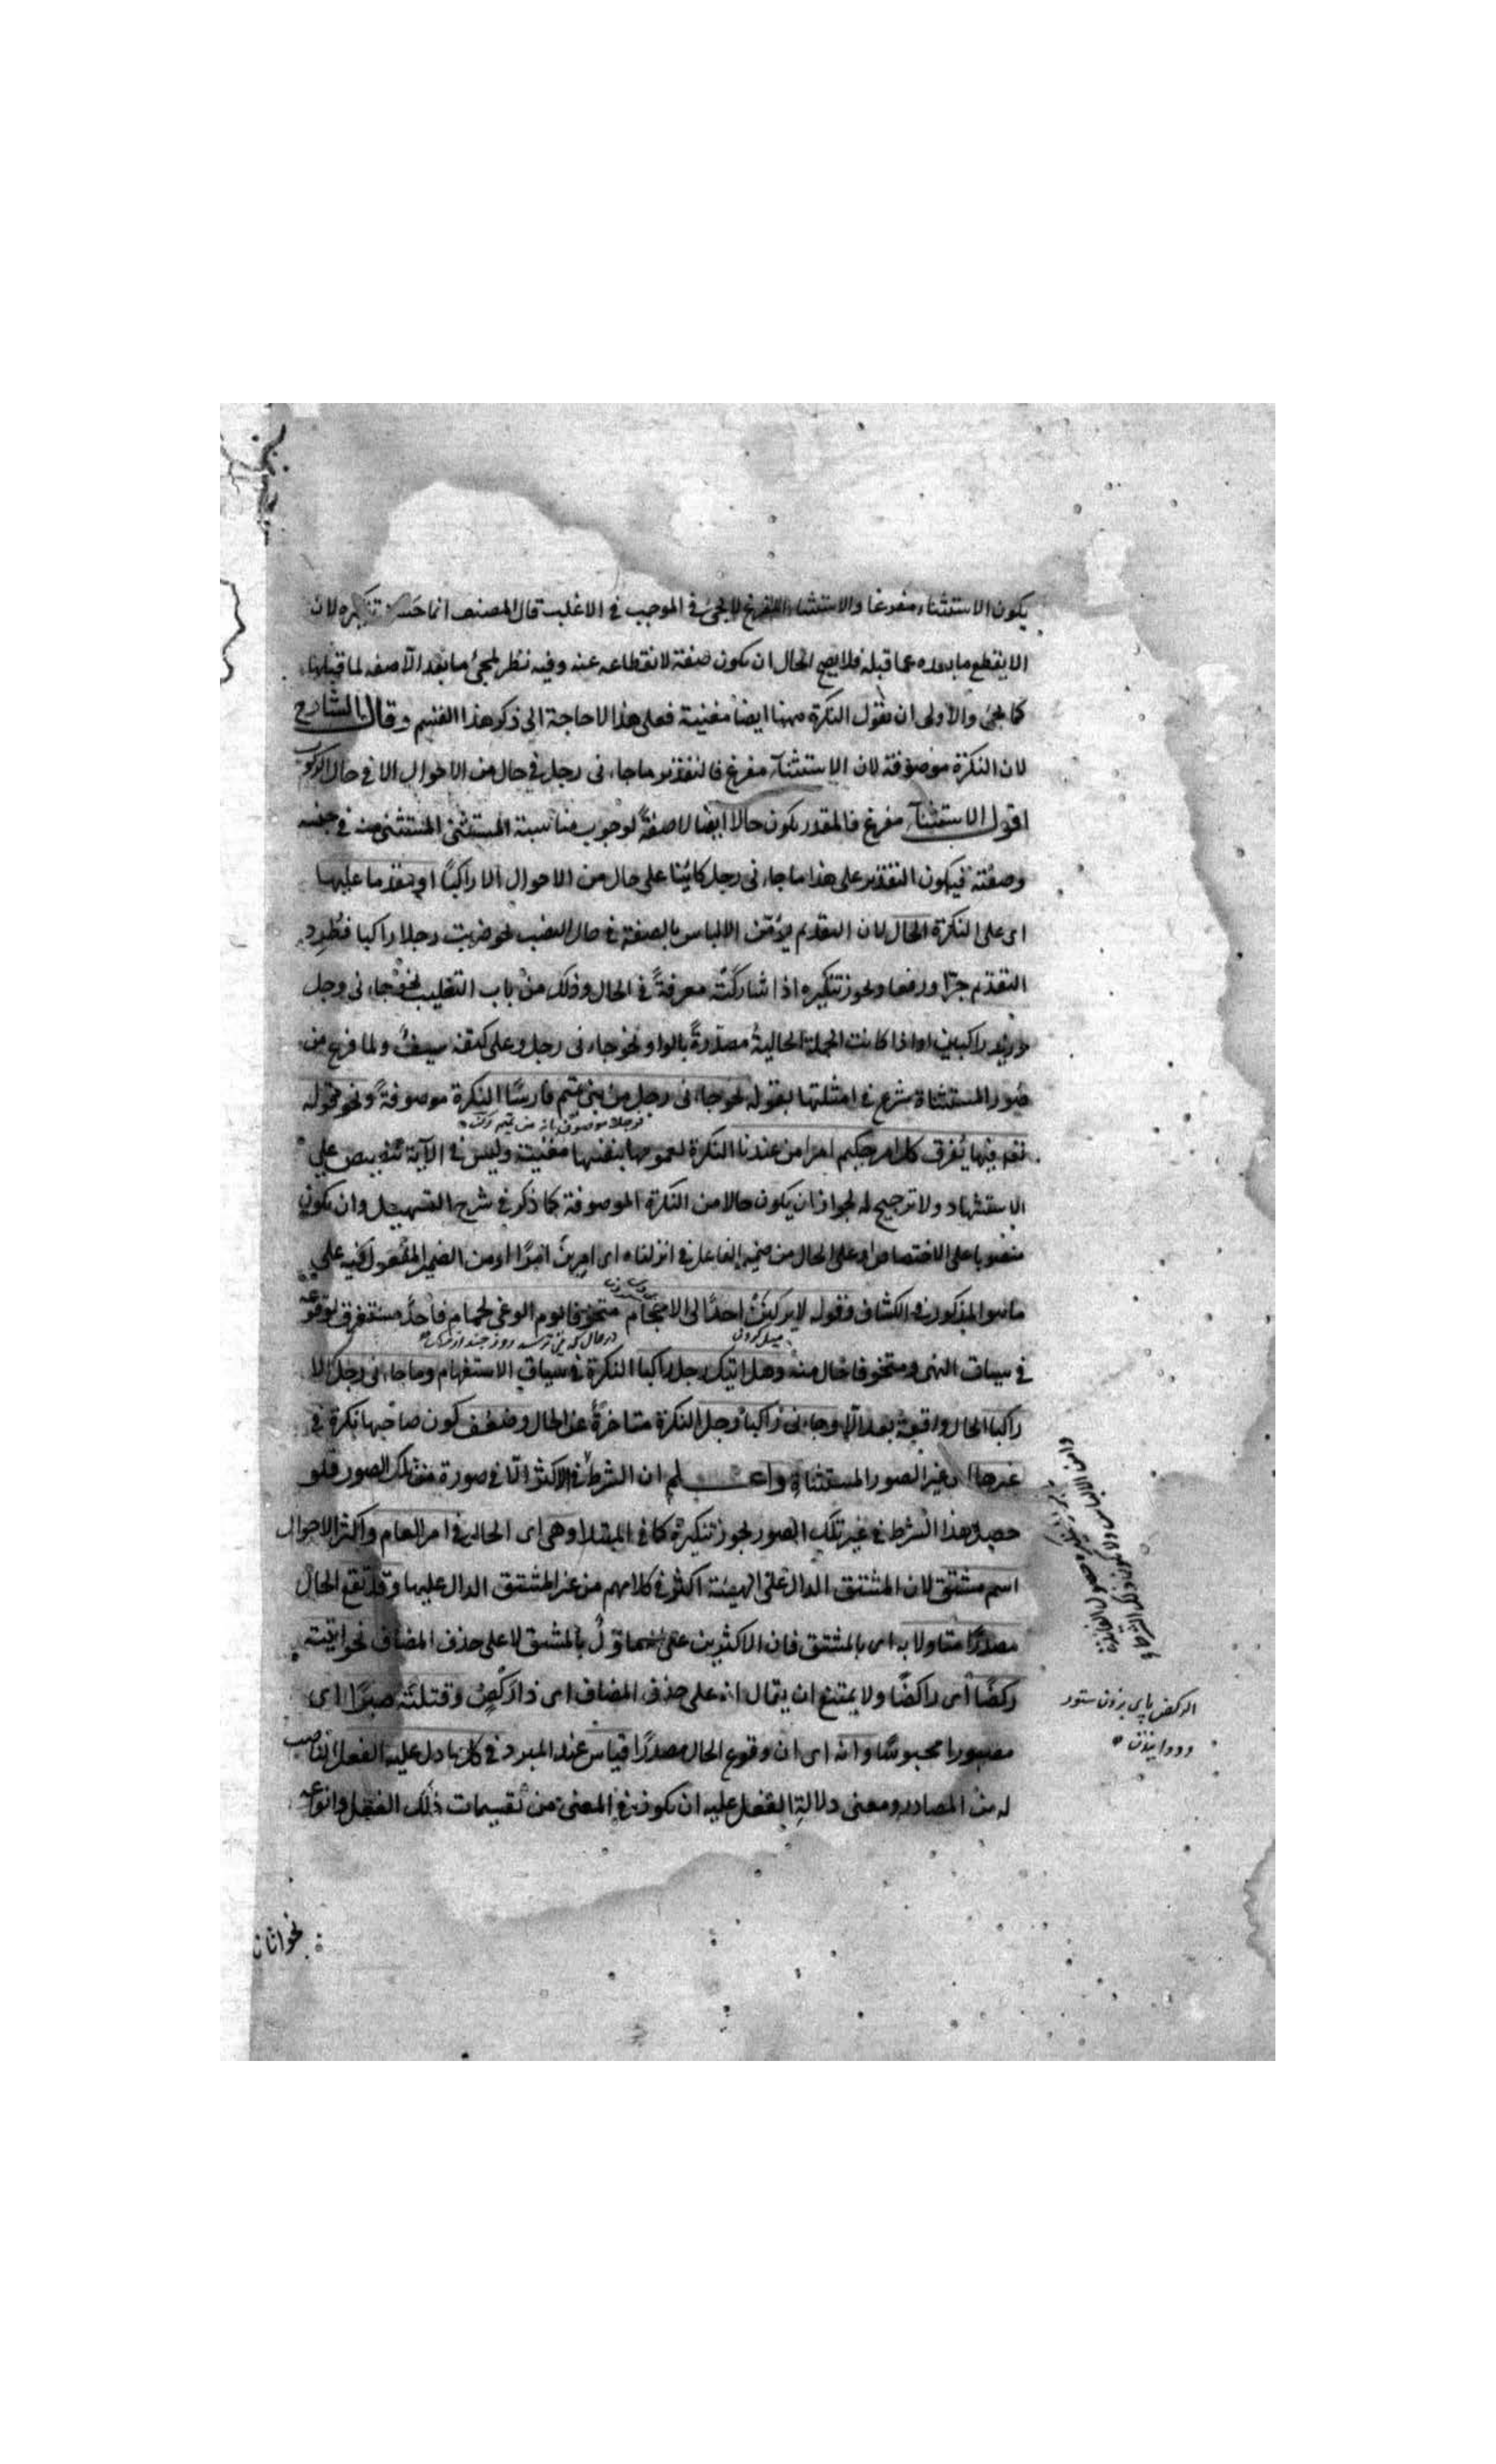 يكون الاستثناء مفرغا والاستثناء المفرغ لا يجئ في الموجب في الاغلب قال المصنف انما حسن تنكيره لان
الا يقطع ما بعده عما قبله فلا يصح الحال ان يكون صفة لانقطاعه عنه وفيه نظر لمجئ ما بعد الا صفه لما قبلها
كما يجئ والأولى ان نقول النكرة ههنا ايضا مغنية فعلى هذا لا حاجة الى ذكر هذا القسم وقال الشارح
لان النكرة موصوفة لان الاستثناء مفرغ فالتقدير ما جاءنى رجل في حال من الاحوال الا في حال الركوب
اقول الاستثناء مفرغ فالمقدر يكون حالا ايضا لا صفةً لوجوب مناسبة المستثنى المستثنى منه في جنسه
وصفته فيكون التقدير على هذا ما جاءنى رجل كائنا على حال من الاحوال الا راكبًا او بتقدمها عليها
اى على النكرة الحال لان التقديم يؤمن الالباس بالصفة في حال النصب نحو ضربت رجلا راكبا فطُرِد
التقديم جرّا ورفعا ويجوز تنكيره اذا شاركته معرفةً في الحال وذلك من باب التغليب نحو جاءنى رجل
وزيد راكبين او اذا كانت الجملة الحاليةُ مصدّرةً بالواو نحو جاءنى رجل وعلى كتفه سيفٌ ولما فرغ من
صُور المستثناة شرع في امثلتها بقوله نحو جاءنى رجل من بنى تميم فارسًا النكرة موصوفةً ونحو قوله تع
فيها يُفرق كل امر حكيم امرا من عندنا النكرة لعمومها بنفسها مغنية وليس في الآية تنصيص على
الاستشهاد ولا ترجيح له لجواز ان يكون حالا من النكرة الموصوفة كما ذكر في شرح التسهيل وان يكون
منصوبا على الاختصاص او على الحال من ضمير الفاعل في انزلناه اى امرين امرًا او من الضمير المفعول فيه على
ما هو المذكور في الكشاف وقوله لا يركنَنْ احدٌ الى الاحجام متخوفا يوم الوغى لحمام فاحد مستغرق لوقوعه
في سياق النهى ومتخوفا حال منه وهل اتيك رجل راكبا النكرة في سياق الاستفهام وما جاءنى رجل الا
راكبا الحال واقعة بعد الا وجاءنى راكبا رجل النكرة متاخرةً عن الحال وضعف كون صاحبها نكرة في
غيرها اى غير الصور المستثناة واعلم ان الشرط في الاكثر الا في صورة من تلك الصور فلو
حصل هذا الشرط في غير تلك الصور يجوز تنكيره كما في المبتدا وهى اى الحال في امر العام واكثر الاحوال
اسم مشتق لان المشتق الدال على الهيئة اكثر في كلامهم من غير المشتق الدال عليها وقد تقع الحال
مصدرًا متاولا به اى بالمشتق فان الاكثرين على انها مؤول بالمشتق لا على حذف المضاف نحو اتيته
ركضًا اى راكضًا ولا يمتنع ان يقال انه على حذف المضاف اى ذا ركضٍ وقتلته صبرًا اى
مصبورا محبوسًا وانه اى ان وقوع الحال مصدرًا قياس عند المبرد في كل ما دل عليه الفعل الناصب
له من المصادر ومعنى دلالة الفعل عليه ان يكون في المعنى من تقسيمات ذلك الفعل وانواعه
الركض پاى بزدن ستور
ودوانيدن
نحو اتان